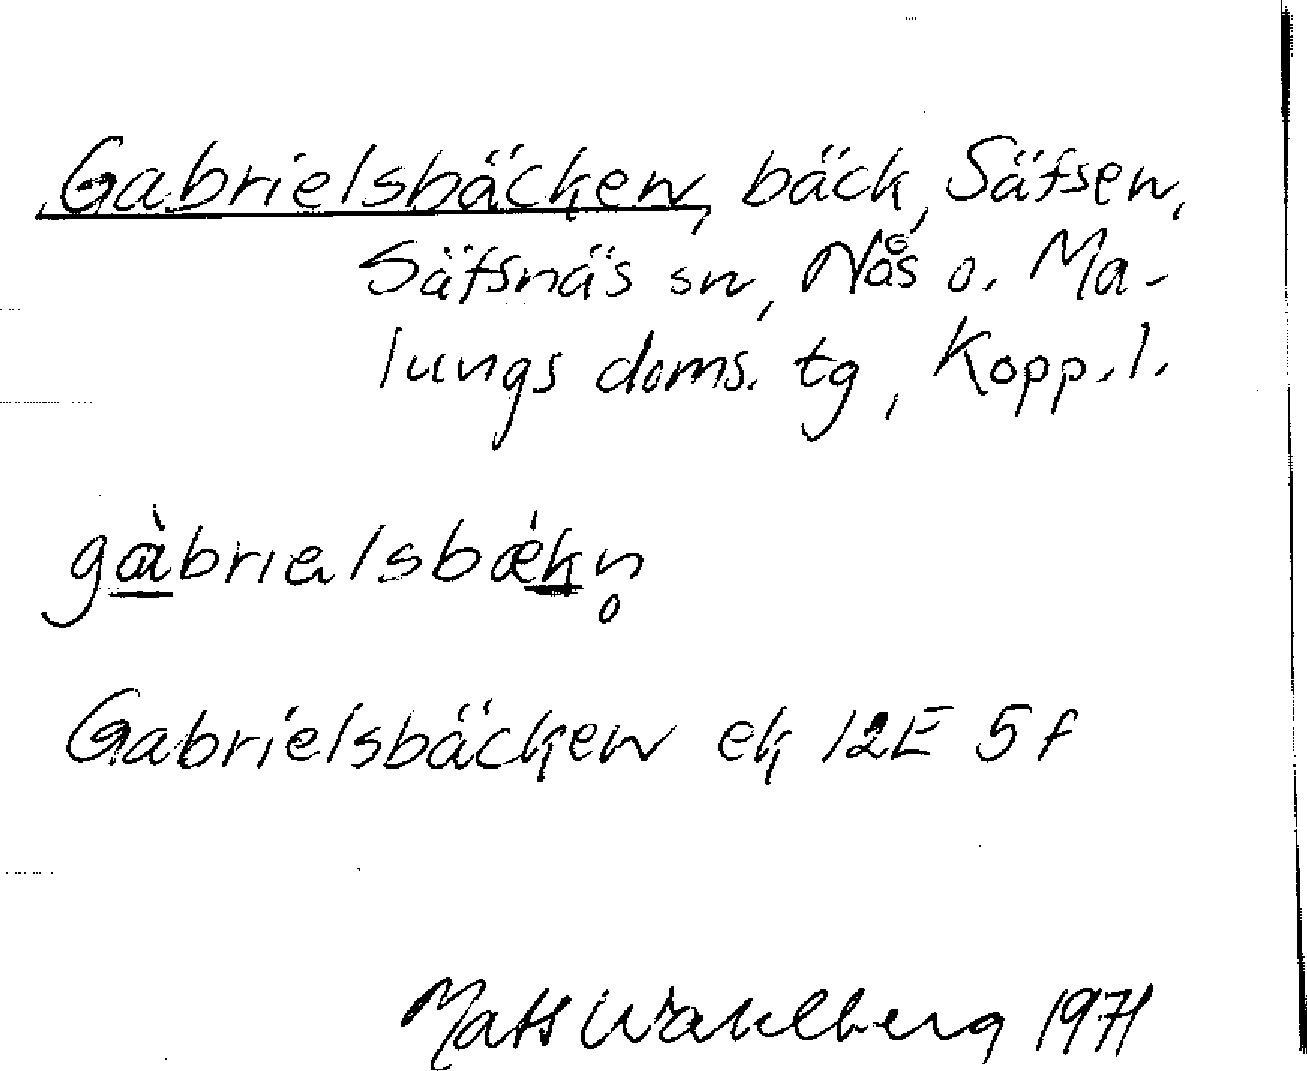 Gabrielsbäcken, bäck, Säfsen,
Säfsnäs sn, Nås o. Ma-
lungs doms. tg, Kopp. l.
gàbrielsbǽkn̥
Gabrielsbäcken ek 12E 5f
Mats Wahlberg 1971